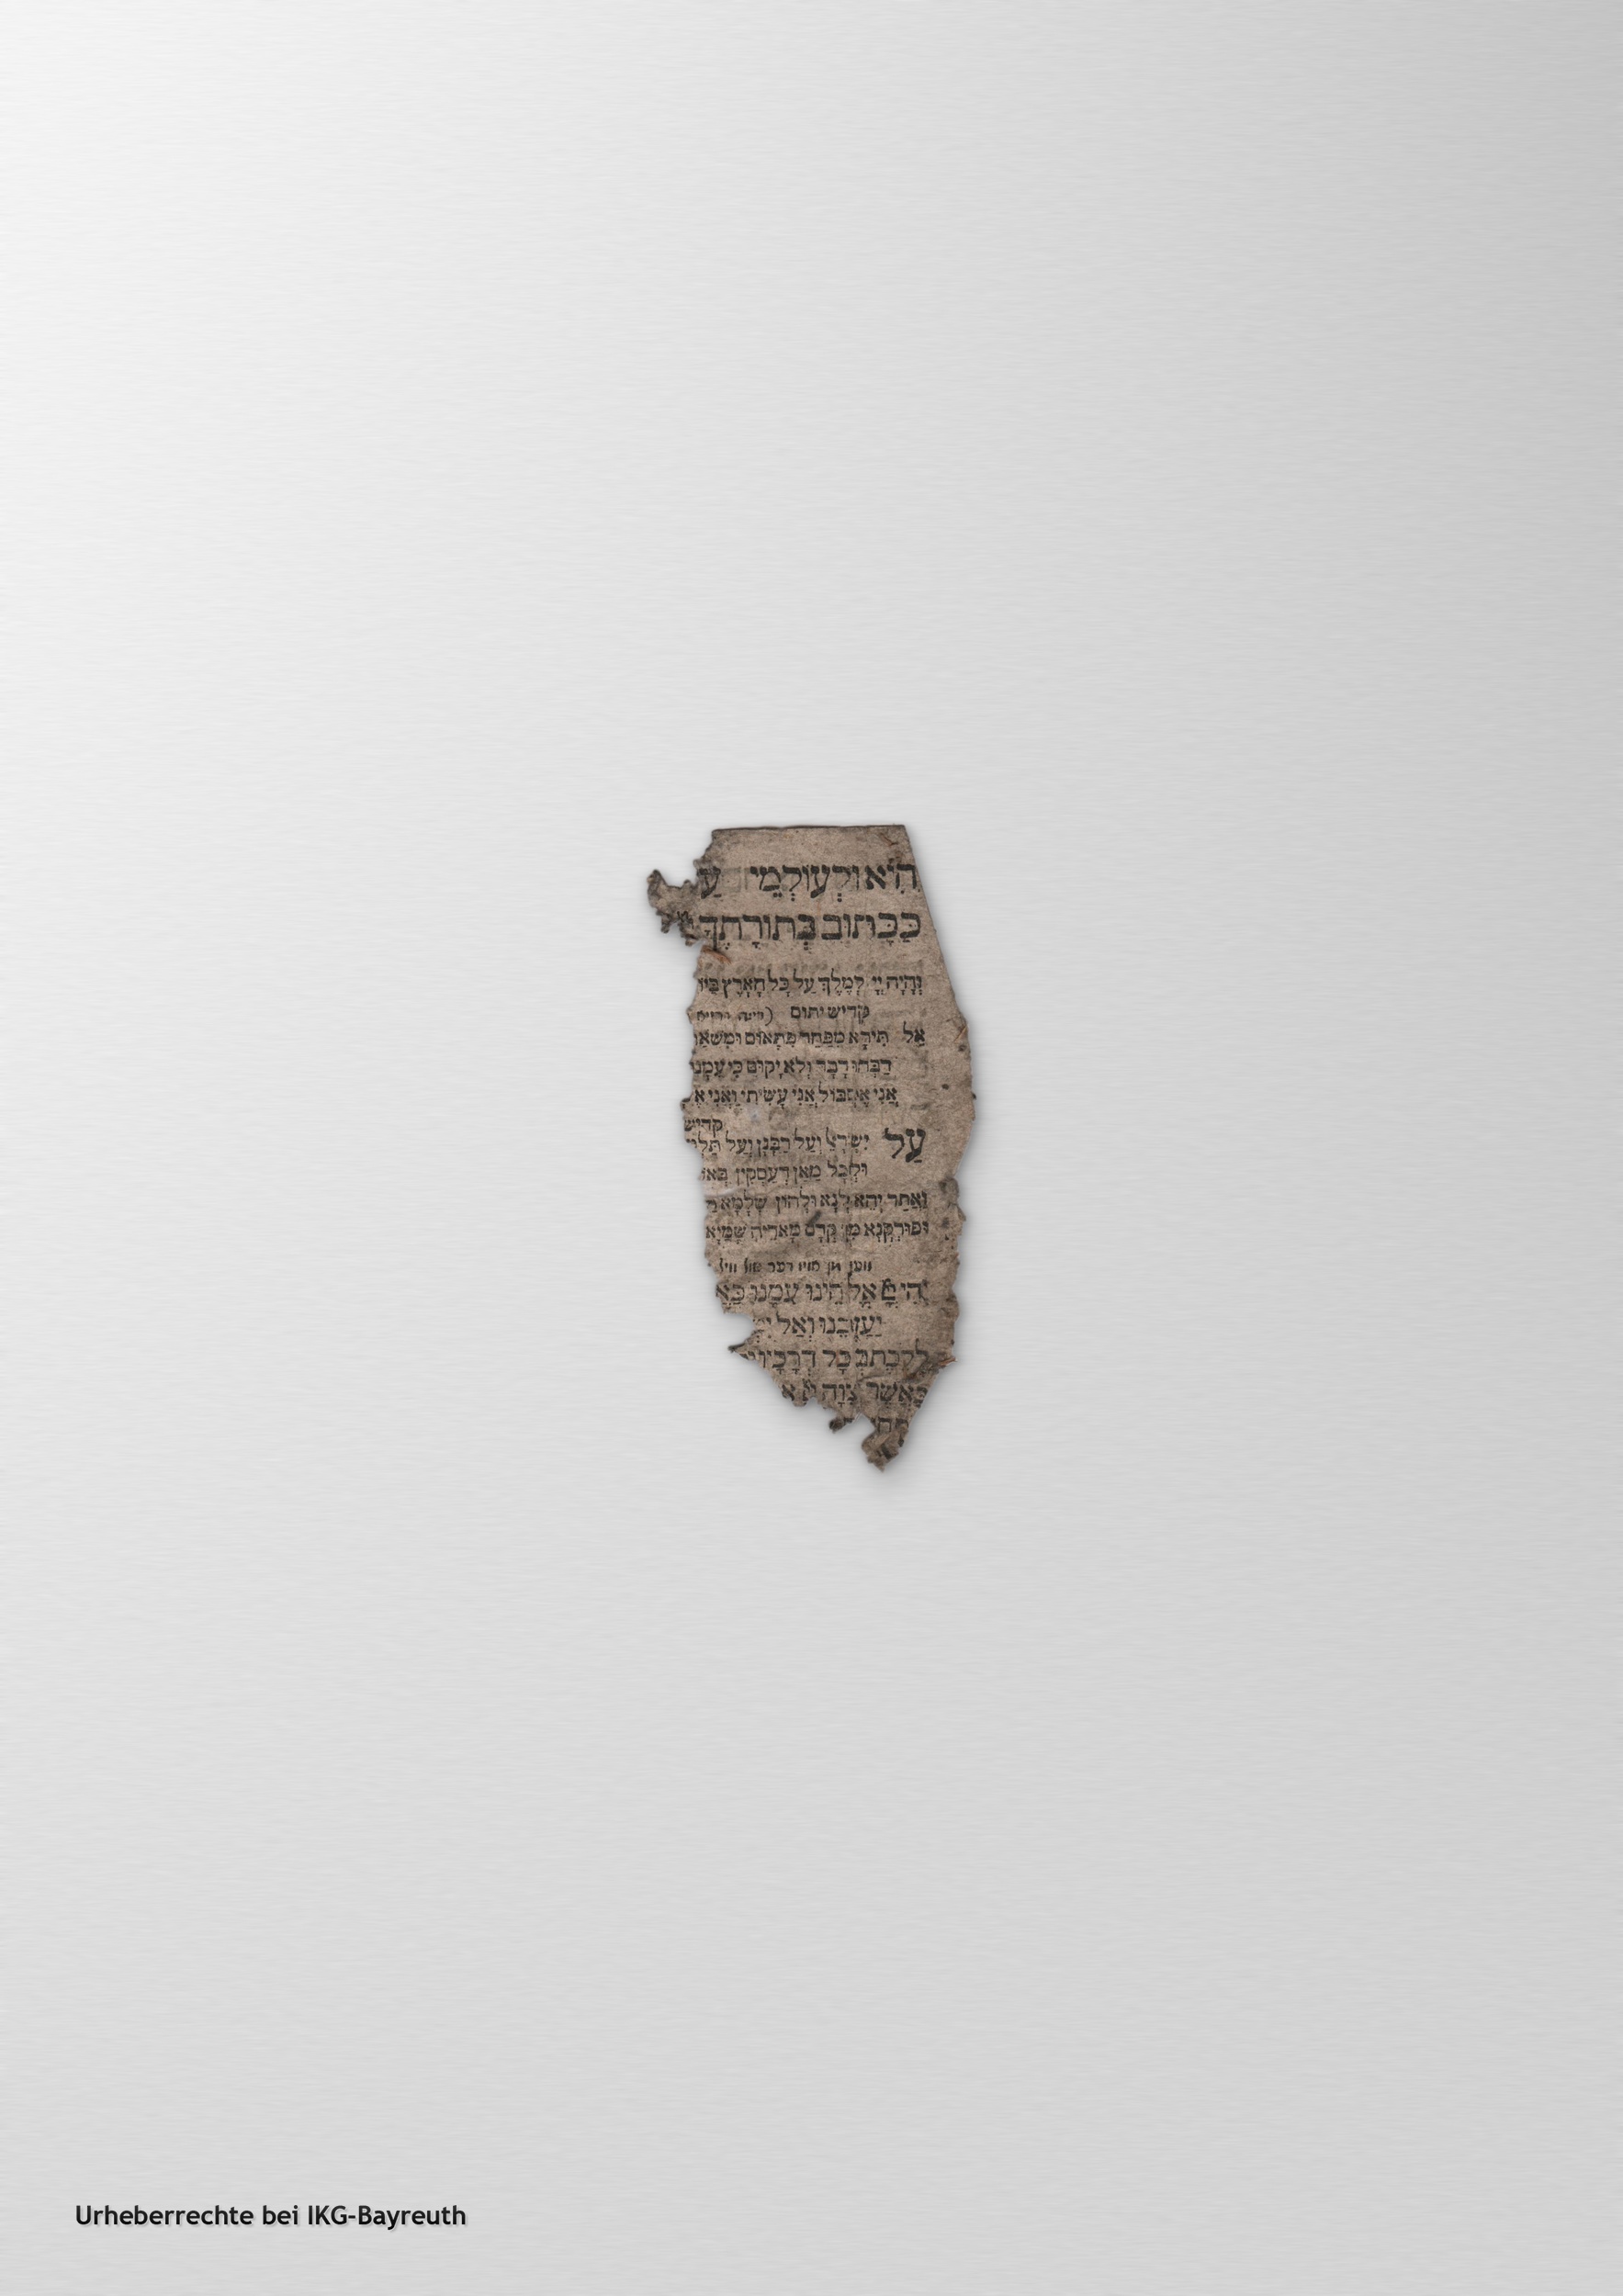 הִיא וּלְעוֹלְמֵי עַ
כַּכָּתוּב בְּתוֹרָתֶךָ
וְהָיָה יְיָ לְמֶלֶךְ עַל כָּל הָאָרֶץ בַּיּוֹ
קדיש יתום
אַל תִּירָא מִפַּחַד פִּתְאוֹם וּמִשֹּׁאַ
דַבְּרוּ דָבָר וְלֹא יָקוּם כִּי עִמָּנוּ
אֲנִי אֶסְבּוֹל אֲנִי עָשִׂיתִי וַאֲנִי אֶ
קדיש
עַל יִשְׂרָאֵל וְעַל רַבָּנָן וְעַל תַּלְמִ
וּלְכָל מַאן דְּעָסְקִין בְּאוֹ
וַאֲתַר יְהֵא לָנָא וּלְהוֹן שְׁלָמָא
וּפוּרְקָנָא מִן קֳדָם מָארֵיהּ שְׁמַיָּא
יְהִי יְיָ אֱלֹהֵינוּ עִמָּנוּ כַּאֲ
יַעַזְבֵנוּ וְאַל
לָלֶכֶת בְּכָל דְּרָכָיו
כַּאֲשֶׁר צִוָּה
Urheberrechte bei IKG-Bayreuth